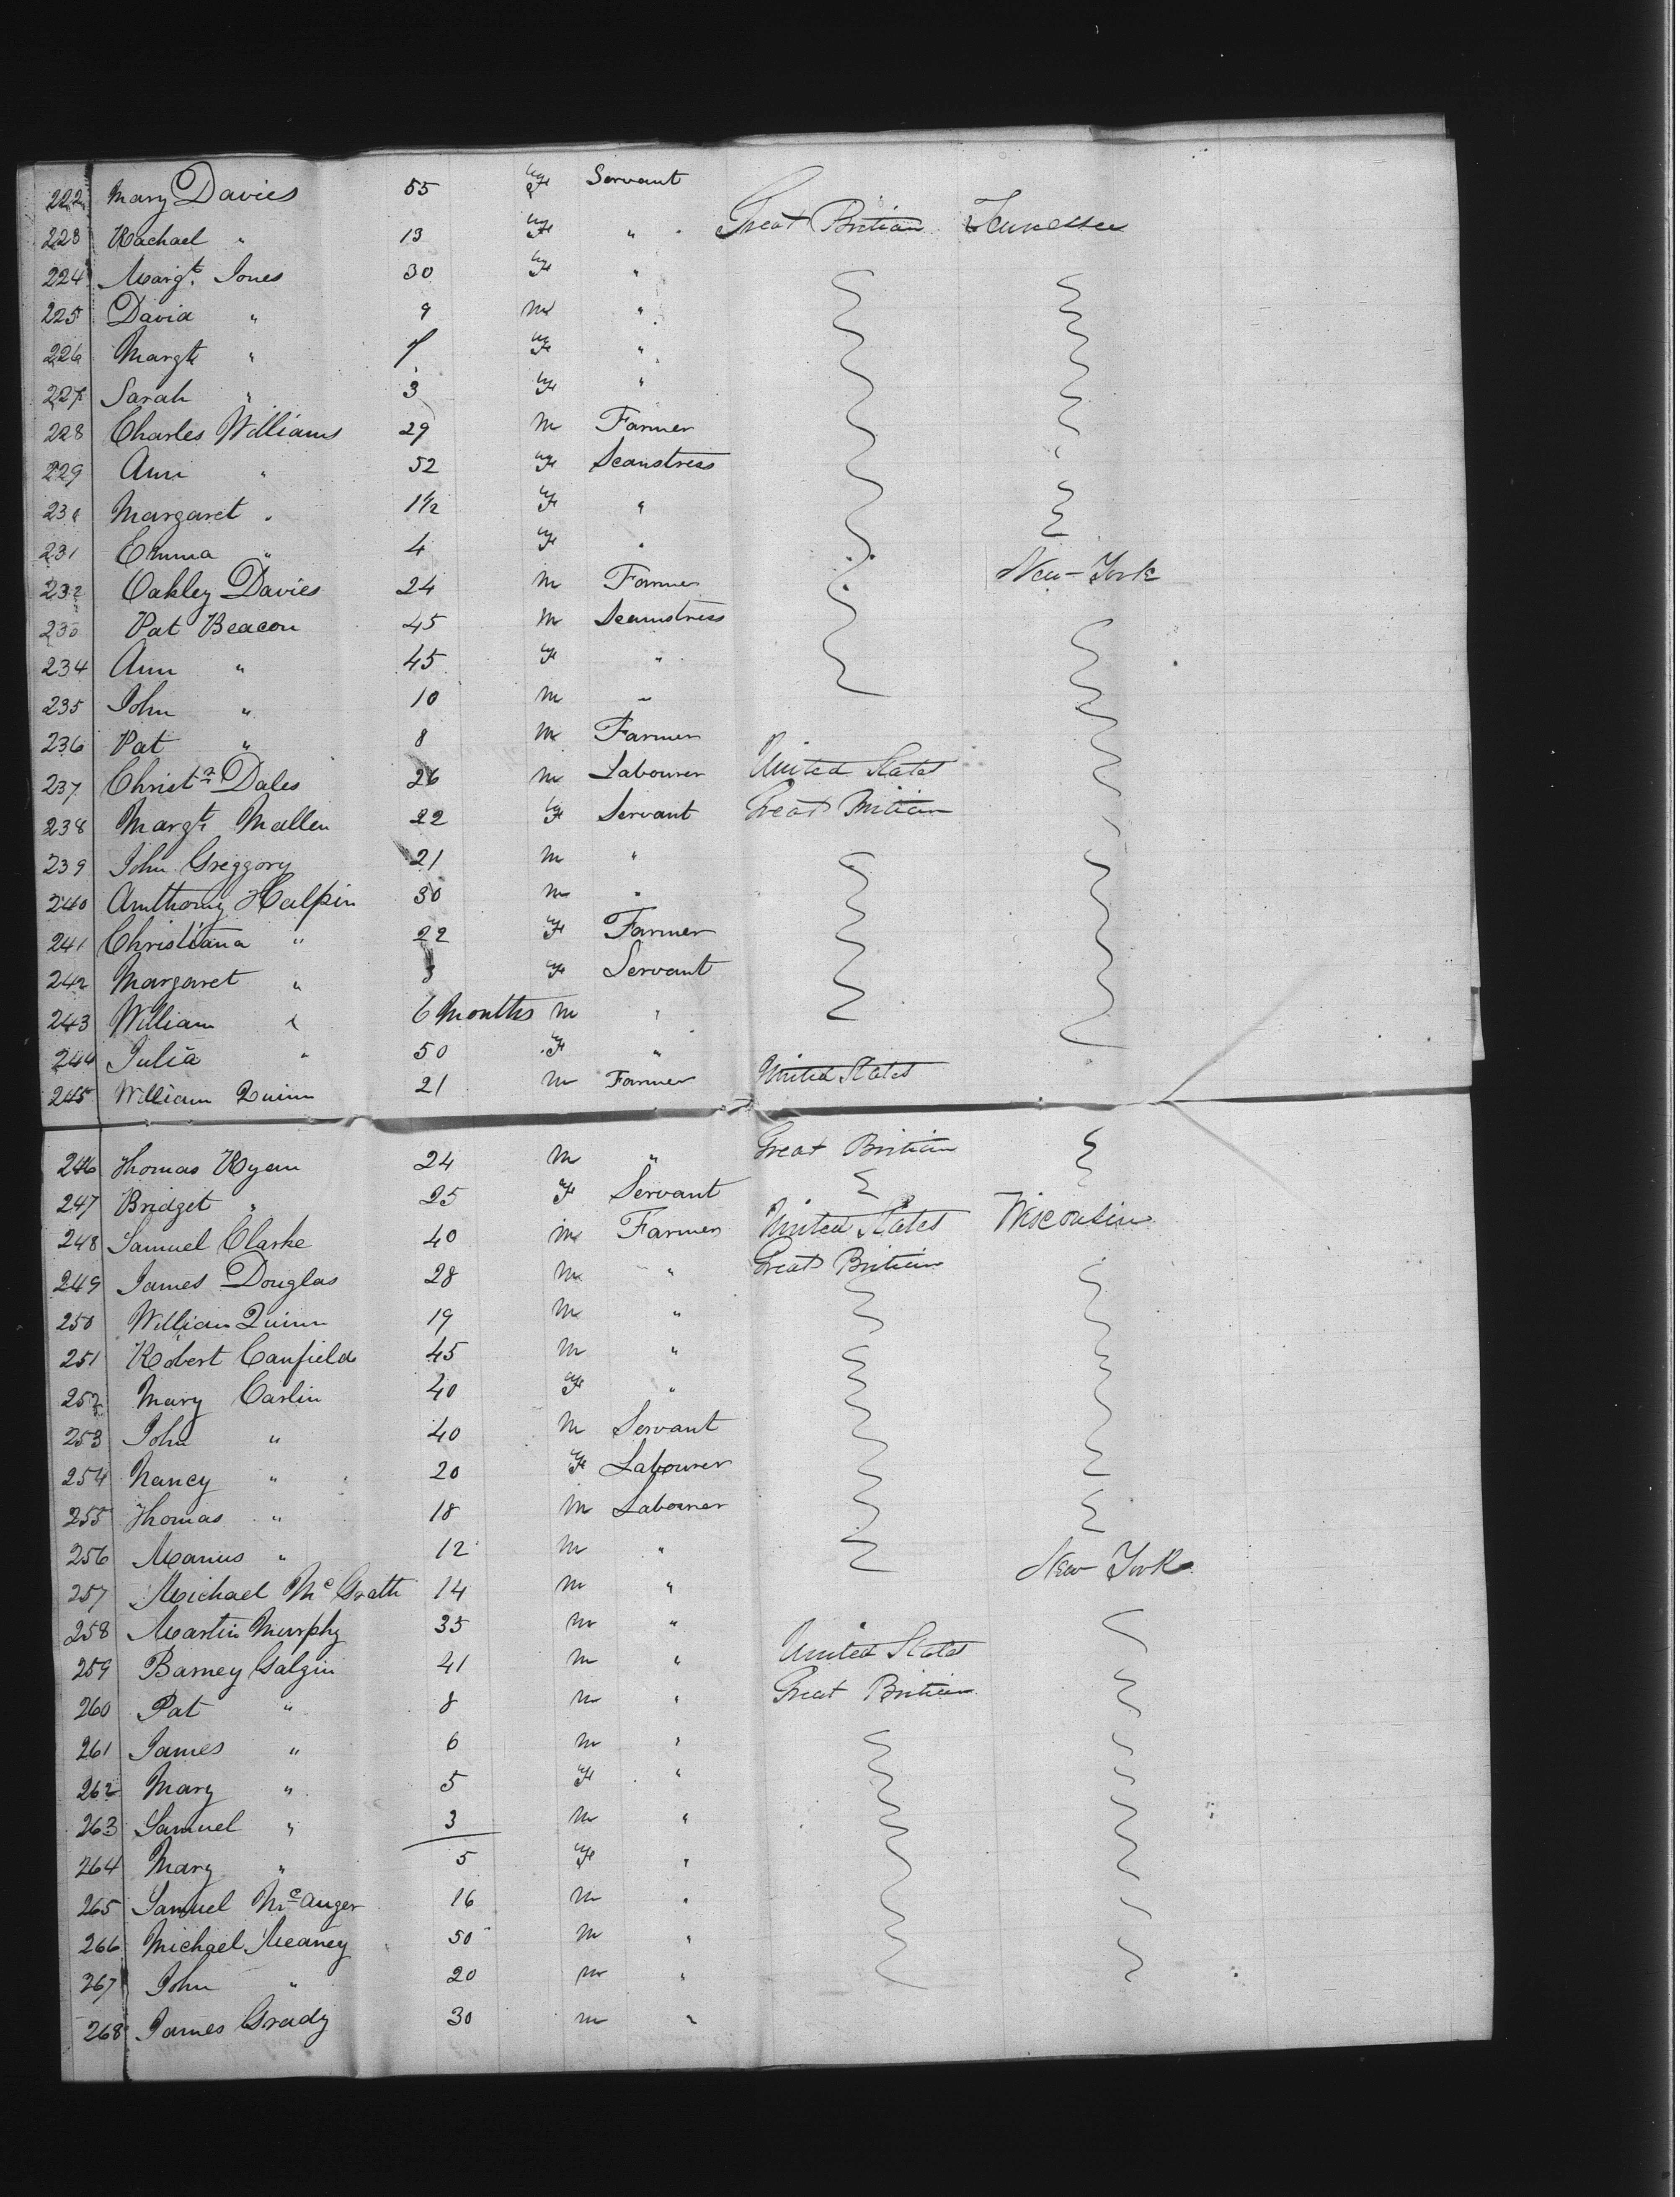 222 Mary Davies 55 F Servant
223 Rachael " 13 F " Great Britian Tennessee
224 Margt. Jones 30 F "
225 David " 9 M "
226 Margt " 7 F "
227 Sarah " 3 F "
228 Charles Williams 29 M Farmer
229 Ann " 52 F Seamstress
230 Margaret " 1 1/2 F "
231 Emma " 4 F "
232 Oakley Davies 24 M Farmer New-York
233 Pat Beacon 45 M Seamstress
234 Ann " 45 F "
235 John " 10 M "
236 Pat " 8 M Farmer
237 Christn Dales 26 M Labourer United States
238 Margt Mallen 22 F Servant Great Britian
239 John Greggory 21 M "
240 Anthony Halpin 30 M "
241 Christiana " 22 F Farmer
242 Margaret " 3 F Servant
243 William " 6 Months M "
244 Julia " 50 F "
245 William Quinn 21 M Farmer United States
246 Thomas Ryan 24 M " Great Britian
247 Bridget " 25 F Servant
248 Samuel Clarke 40 M Farmer United States Wisconsin
249 James Douglas 28 M " Great Britian
250 William Quinn 19 M "
251 Robert Canfield 45 M "
252 Mary Carlin 40 F "
253 John " 40 M Servant
254 Nancy " 20 F Labourer
255 Thomas " 18 M Labourer
256 Manus " 12 M "
257 Michael McGrath 14 M " New York
258 Martin Murphy 35 M "
259 Barney Galgin 41 M " United States
260 Pat " 8 M " Great Britian
261 James " 6 M "
262 Mary " 5 F "
263 Samuel " 3 M "
264 Mary " 5 F "
265 Samuel McAnger 16 M "
266 Michael Meaney 50 M "
267 John " 20 M "
268 James Grady 30 M "